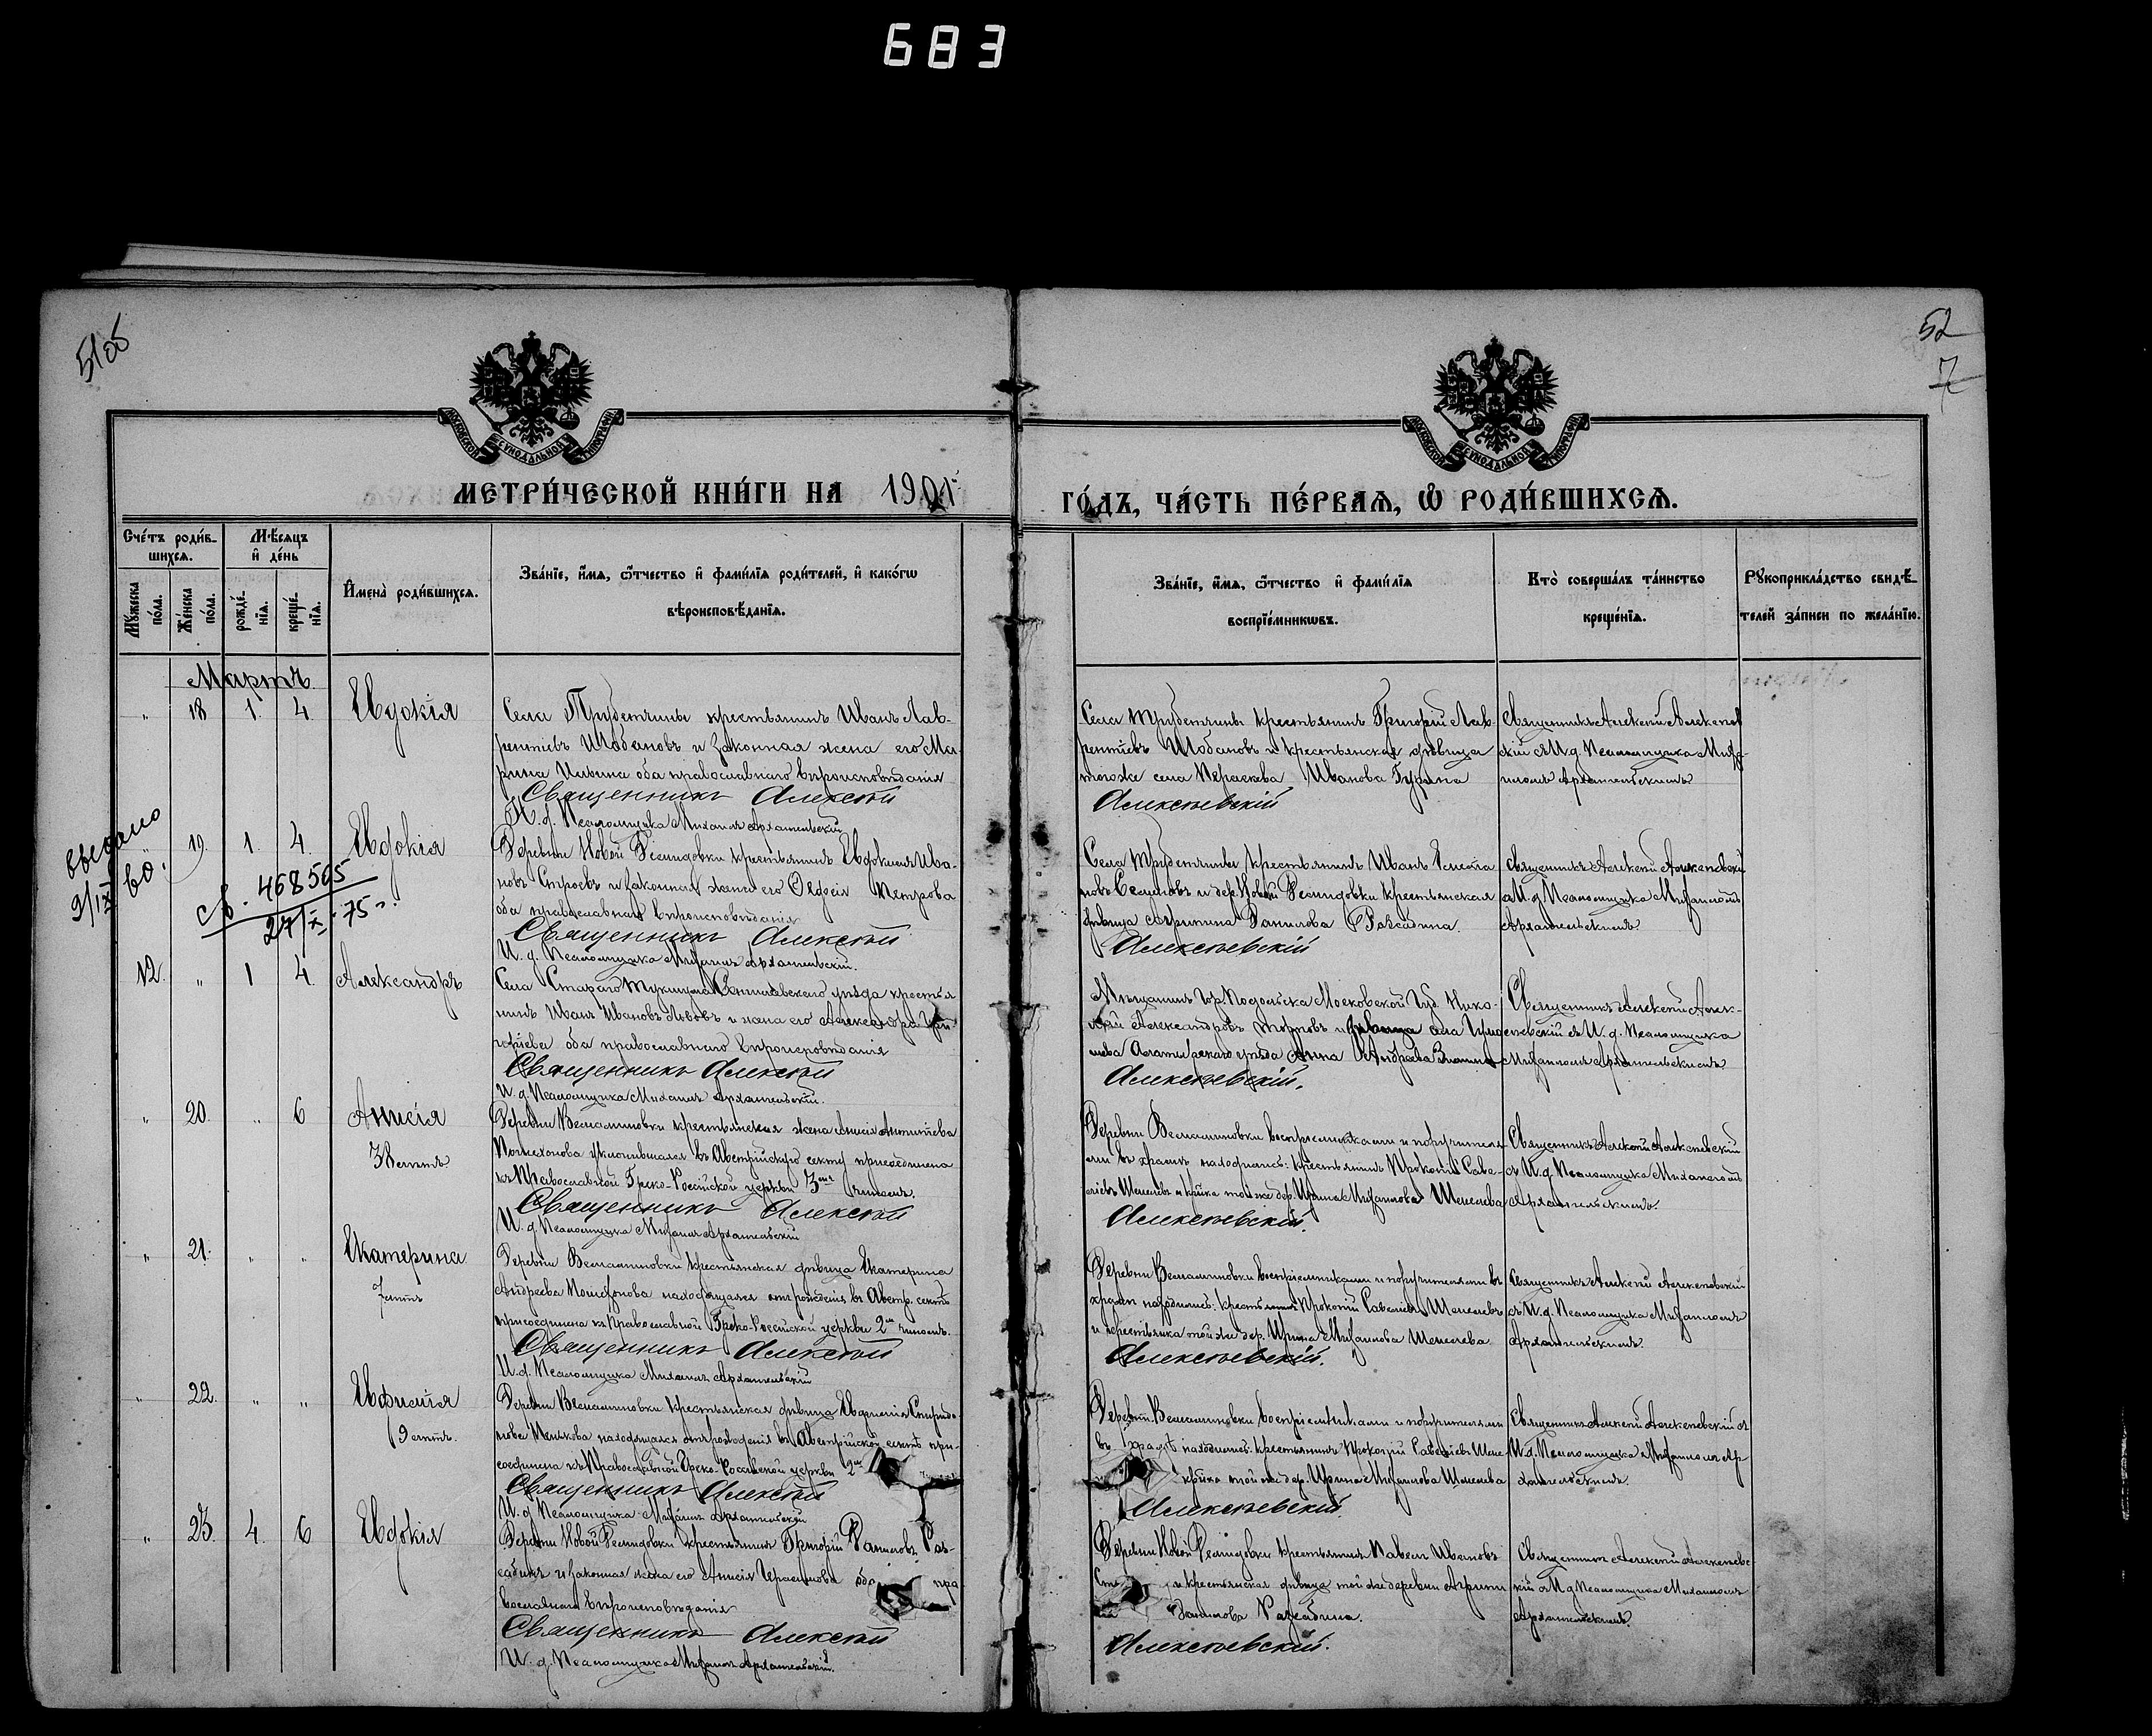 683
51об
52
7
МОСКОВСКОЙ СѴНОДАЛЬНОЙ ТИПОГРАФІИ
МОСКОВСКОЙ СѴНОДАЛЬНОЙ ТИПОГРАФІИ
МЕТРИ́ЧЕСКОЙ КНИ́ГИ НА 1901
ГО́ДЪ, ЧА́СТЬ ПЕ́РВАЯ, Ѡ РОДИ́ВШИХСЯ.
Сче́тъ роди́в-
шихся.
Мѣсяцъ
и де́нь
Му́жеска
по́ла.
Же́нска
по́ла.
рожде́-
нія.
креще́-
нія.
Имена̀ роди́вшихся.
Зва́нїе, и́мя, ѻ́тчество и фами́лїя роди́телей, и како́гѡ
вѣроисповѣ́данїя.
Зва́нїе, и́мя, ѻ́тчество и фами́лїя
воспрїе́мникѡвъ.
Кто̀ соверша́лъ та́инство
креще́нїя.
Рукоприкла́дство свидѣ́-
телей за́писи по жела́нїю.
Мартъ
" 18 1. 4. Евдокія
Села Трубетчины крестьянинъ Иванъ Лав-
рентіевъ Шобановъ и законная жена его Ма-
рина Ильина оба православнаго вѣроисповѣданія
Священникъ Алексѣй
И. д. Псаломщика Михаилъ Архангельскій
Села Трубетчины крестьянинъ Григорій Лав-
рентіевъ Шобановъ и крестьянская дѣвица
тогоже села Параскева Иванова Гурина
Алексѣевскій
Священникъ Алексѣй Алексѣев
скій съ И. д. Псаломщика Миха-
иломъ Архангельскимъ
" 19. 1. 4. Евдокія
св. 468505
27/X-75
Деревни Новой Демидовки крестьянинъ Евдокимъ Ива-
новъ и законная жена его Ѳедосія Петрова
оба православнаго вѣроисповѣданія
Священникъ Алексѣй
И. д. Псаломщика Михаилъ Архангельскій.
Села Трубетчины крестьянинъ Иванъ
и дер. Новой Демидовки крестьянская
дѣвица Данилова
Алексѣевскій
Священникъ Алексѣй Алексѣевскій
съ И. д Псаломщика Михаиломъ
Архангельскимъ
12. " 1 4. Александръ
Села Стараго уѣзда крестья
нинъ Иванъ Ивановъ Львовъ и жена его Александра
оба православнаго вѣроисповѣданія
Священникъ Алексѣй
И. д. Псаломщика Михаилъ Архангельскій.
Мѣщанинъ гор. Подольска Московской Губ. Нико-
лай Александровъ и дѣвица
уѣзда Анна Андреева
Алексѣевскій.
Священникъ Алексѣй Алек-
сѣевскій съ И. д. Псаломщика
Михаиломъ Архангельскимъ
" 20. " 6 Анисія
38 лѣтъ
Деревни Вельяминовки крестьянская жена Анисія
уклонившаяся въ Австрійскую секту присоединена
къ Православной Греко-Россійской церкви 3мъ чиномъ.
Священникъ Алексѣй
И. д. Псаломщика Михаилъ Архангельскій
Деревни Вельяминовки воспріемниками и поручителя-
ми въ храмѣ находились: крестьянинъ Прокопій Саве-
ліевъ Шепелевъ и кр-ка тойже дер. Ирина Михаилова Шепелева
Алексѣевскій.
Священникъ Алексѣй Алексѣевскій
съ И. д. Псаломщика Михаиломъ
Архангельскимъ.
" 21. " " Екатерина
7 лѣтъ
Деревни Вельяминовки крестьянская дѣвица Екатерина
Андреева находящаяся отъ рожденія въ Австр. сектѣ
присоединена къ Православной Греко-Россійской церкви 2мъ чиномъ.
Священникъ Алексѣй
И. д. Псаломщика Михаилъ Архангельскій
Деревни Вельяминовки воспріемниками и поручителями въ
храмѣ находились: крестьянинъ Прокопій Савеліевъ Шепелевъ
и крестьянка той же дер. Ирина Михаилова Шепелева
Алексѣевскій.
Священникъ Алексѣй Алексѣевскій
съ И. д. Псаломщика Михаиломъ
Архангельскимъ.
" 22. " " Евфимія
9 лѣтъ.
Деревни Вельяминовки крестьянская дѣвица Евфимія Спиридо-
нова находящаяся отъ рожденія въ Австрійской сектѣ при-
соединена къ Православной Греко-Россійской церкви 2мъ
Священникъ Алексѣй
И. д Псаломщика Михаилъ Архангельскій
Деревни Вельяминовки воспріемниками и поручителями
въ храмѣ находились: крестьянинъ Прокопій Савеліевъ Шепе-
кр-ка той же дер. Ирина Михаилова Шепелева
Алексѣевскій.
Священникъ Алексѣй Алексѣевскій съ
И. д. Псаломщика Михаиломъ Ар-
хангельскимъ.
" 23. 4. 6 Евдокія
Деревни Новой Демидовки крестьянинъ Григорій Даниловъ
и законная жена его Анисія Герасимова оба пра
вославнаго вѣроисповѣданія
Священникъ Алексѣй
И. д. Псаломщика Михаилъ Архангельскій.
Деревни Новой Демидовки крестьянинъ Павелъ Ивановъ
и крестьянская дѣвица той же деревни
Данилова
Алексѣевскій.
Священникъ Алексѣй Алексѣевс
кій съ И. д Псаломщика Михаиломъ
Архангельскимъ.